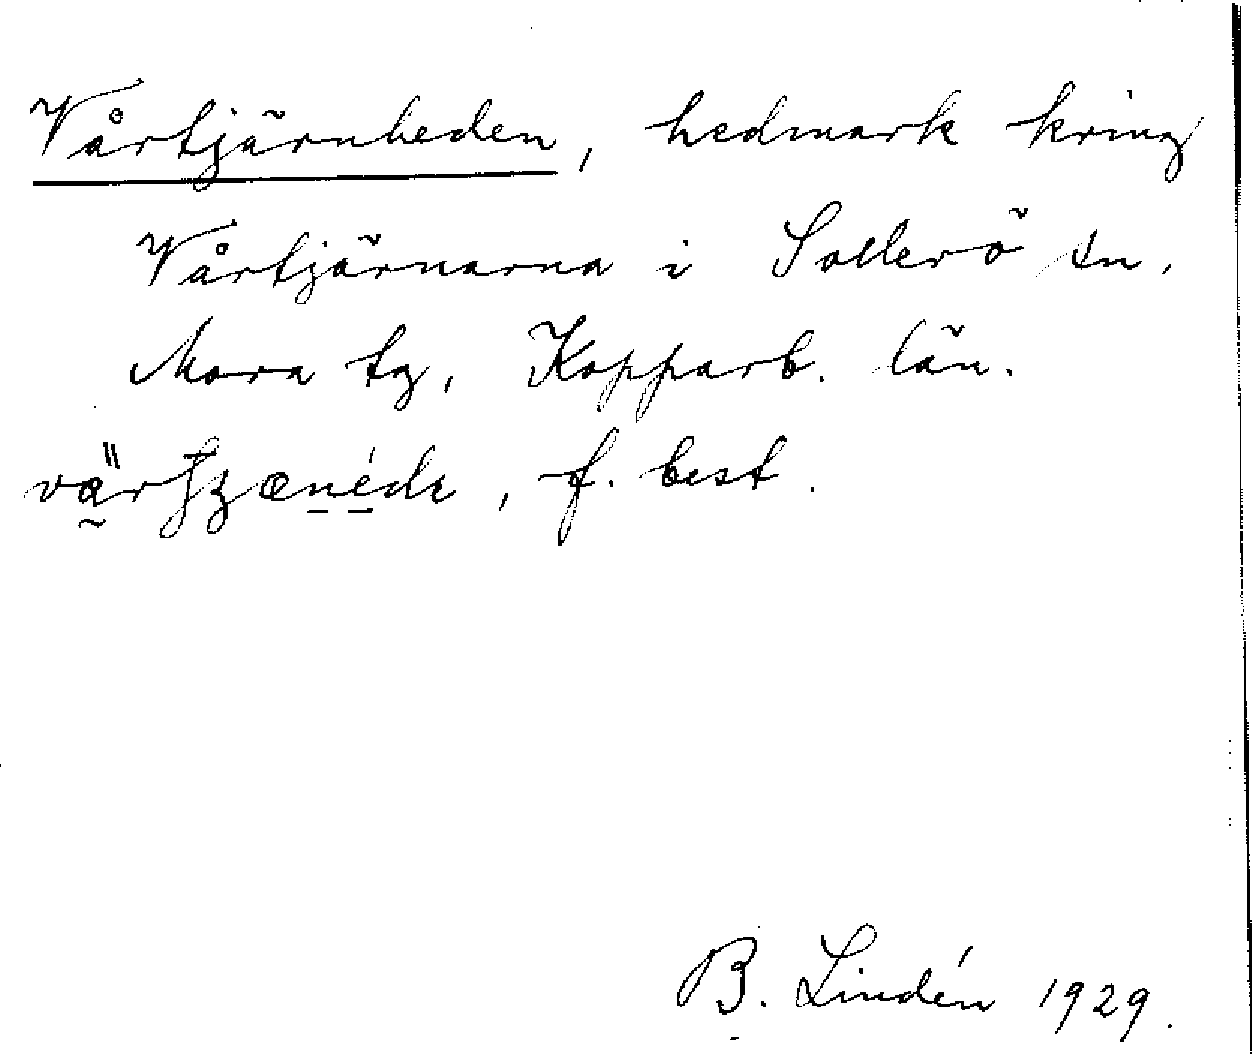 Vårtjärnheden, hedmark kring
Vårtjärnarna i Sollerö sn,
Mora tg, Kopparb. län.
, f. best.
B. Lindén 1929.